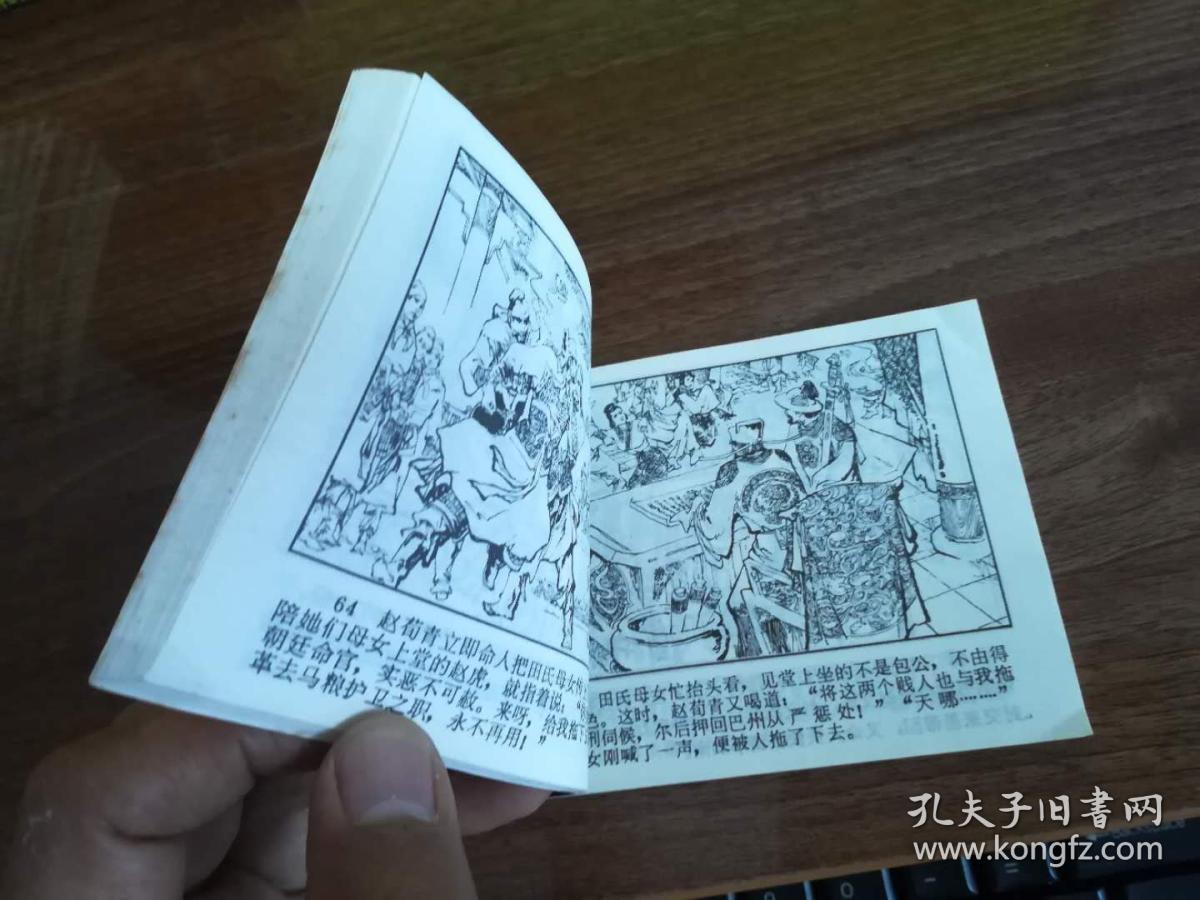 64 赵荀青立即命人把田氏母女
陪她们母女上堂的赵虎，就指着说，
朝廷命官，实恶不可赦。来呀，给我拖下
革去马粮护卫之职，永不再用！”
田氏母女忙抬头看，见堂上坐的不是包公，不由得
色。这时，赵荀青又喝道：“将这两个贱人也与我拖
刑伺候，尔后押回巴州从严惩处！”“天哪………”
女刚喊了一声，便被人拖了下去。
孔夫子旧書网
www.kongfz.com